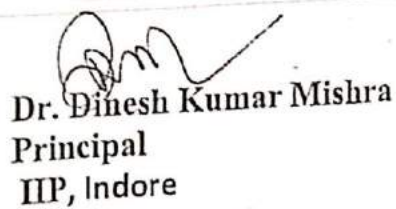 Dr. Dinesh Kumar Mishra
Principal
IIP, Indore